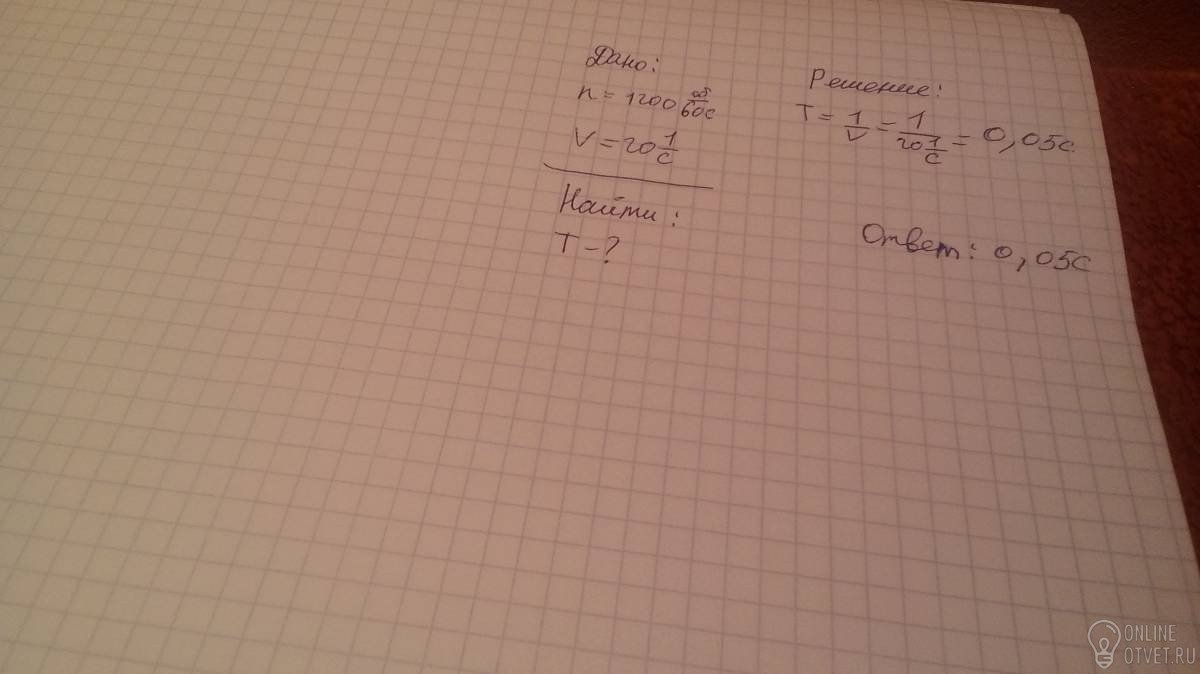 Дано:
n = 1200 об/60с
V = 20 1/с
Найти:
T - ?
Решение:
T = 1/V = 1/(20 1/с) = 0,05с
Ответ: 0,05с
ONLINE
OTVET.RU